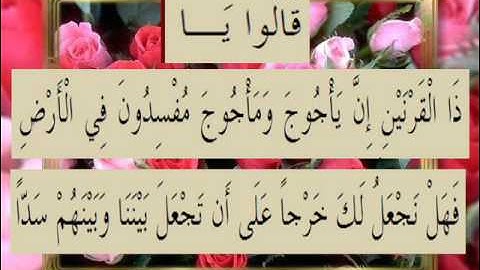 قَالُوا يَــا
ذَا الْقَرْنَيْنِ إِنَّ يَأْجُوجَ وَمَأْجُوجَ مُفْسِدُونَ فِي الْأَرْضِ
فَهَلْ نَجْعَلُ لَكَ خَرْجاً عَلَى أَن تَجْعَلَ بَيْنَنَا وَبَيْنَهُمْ سَدّاً